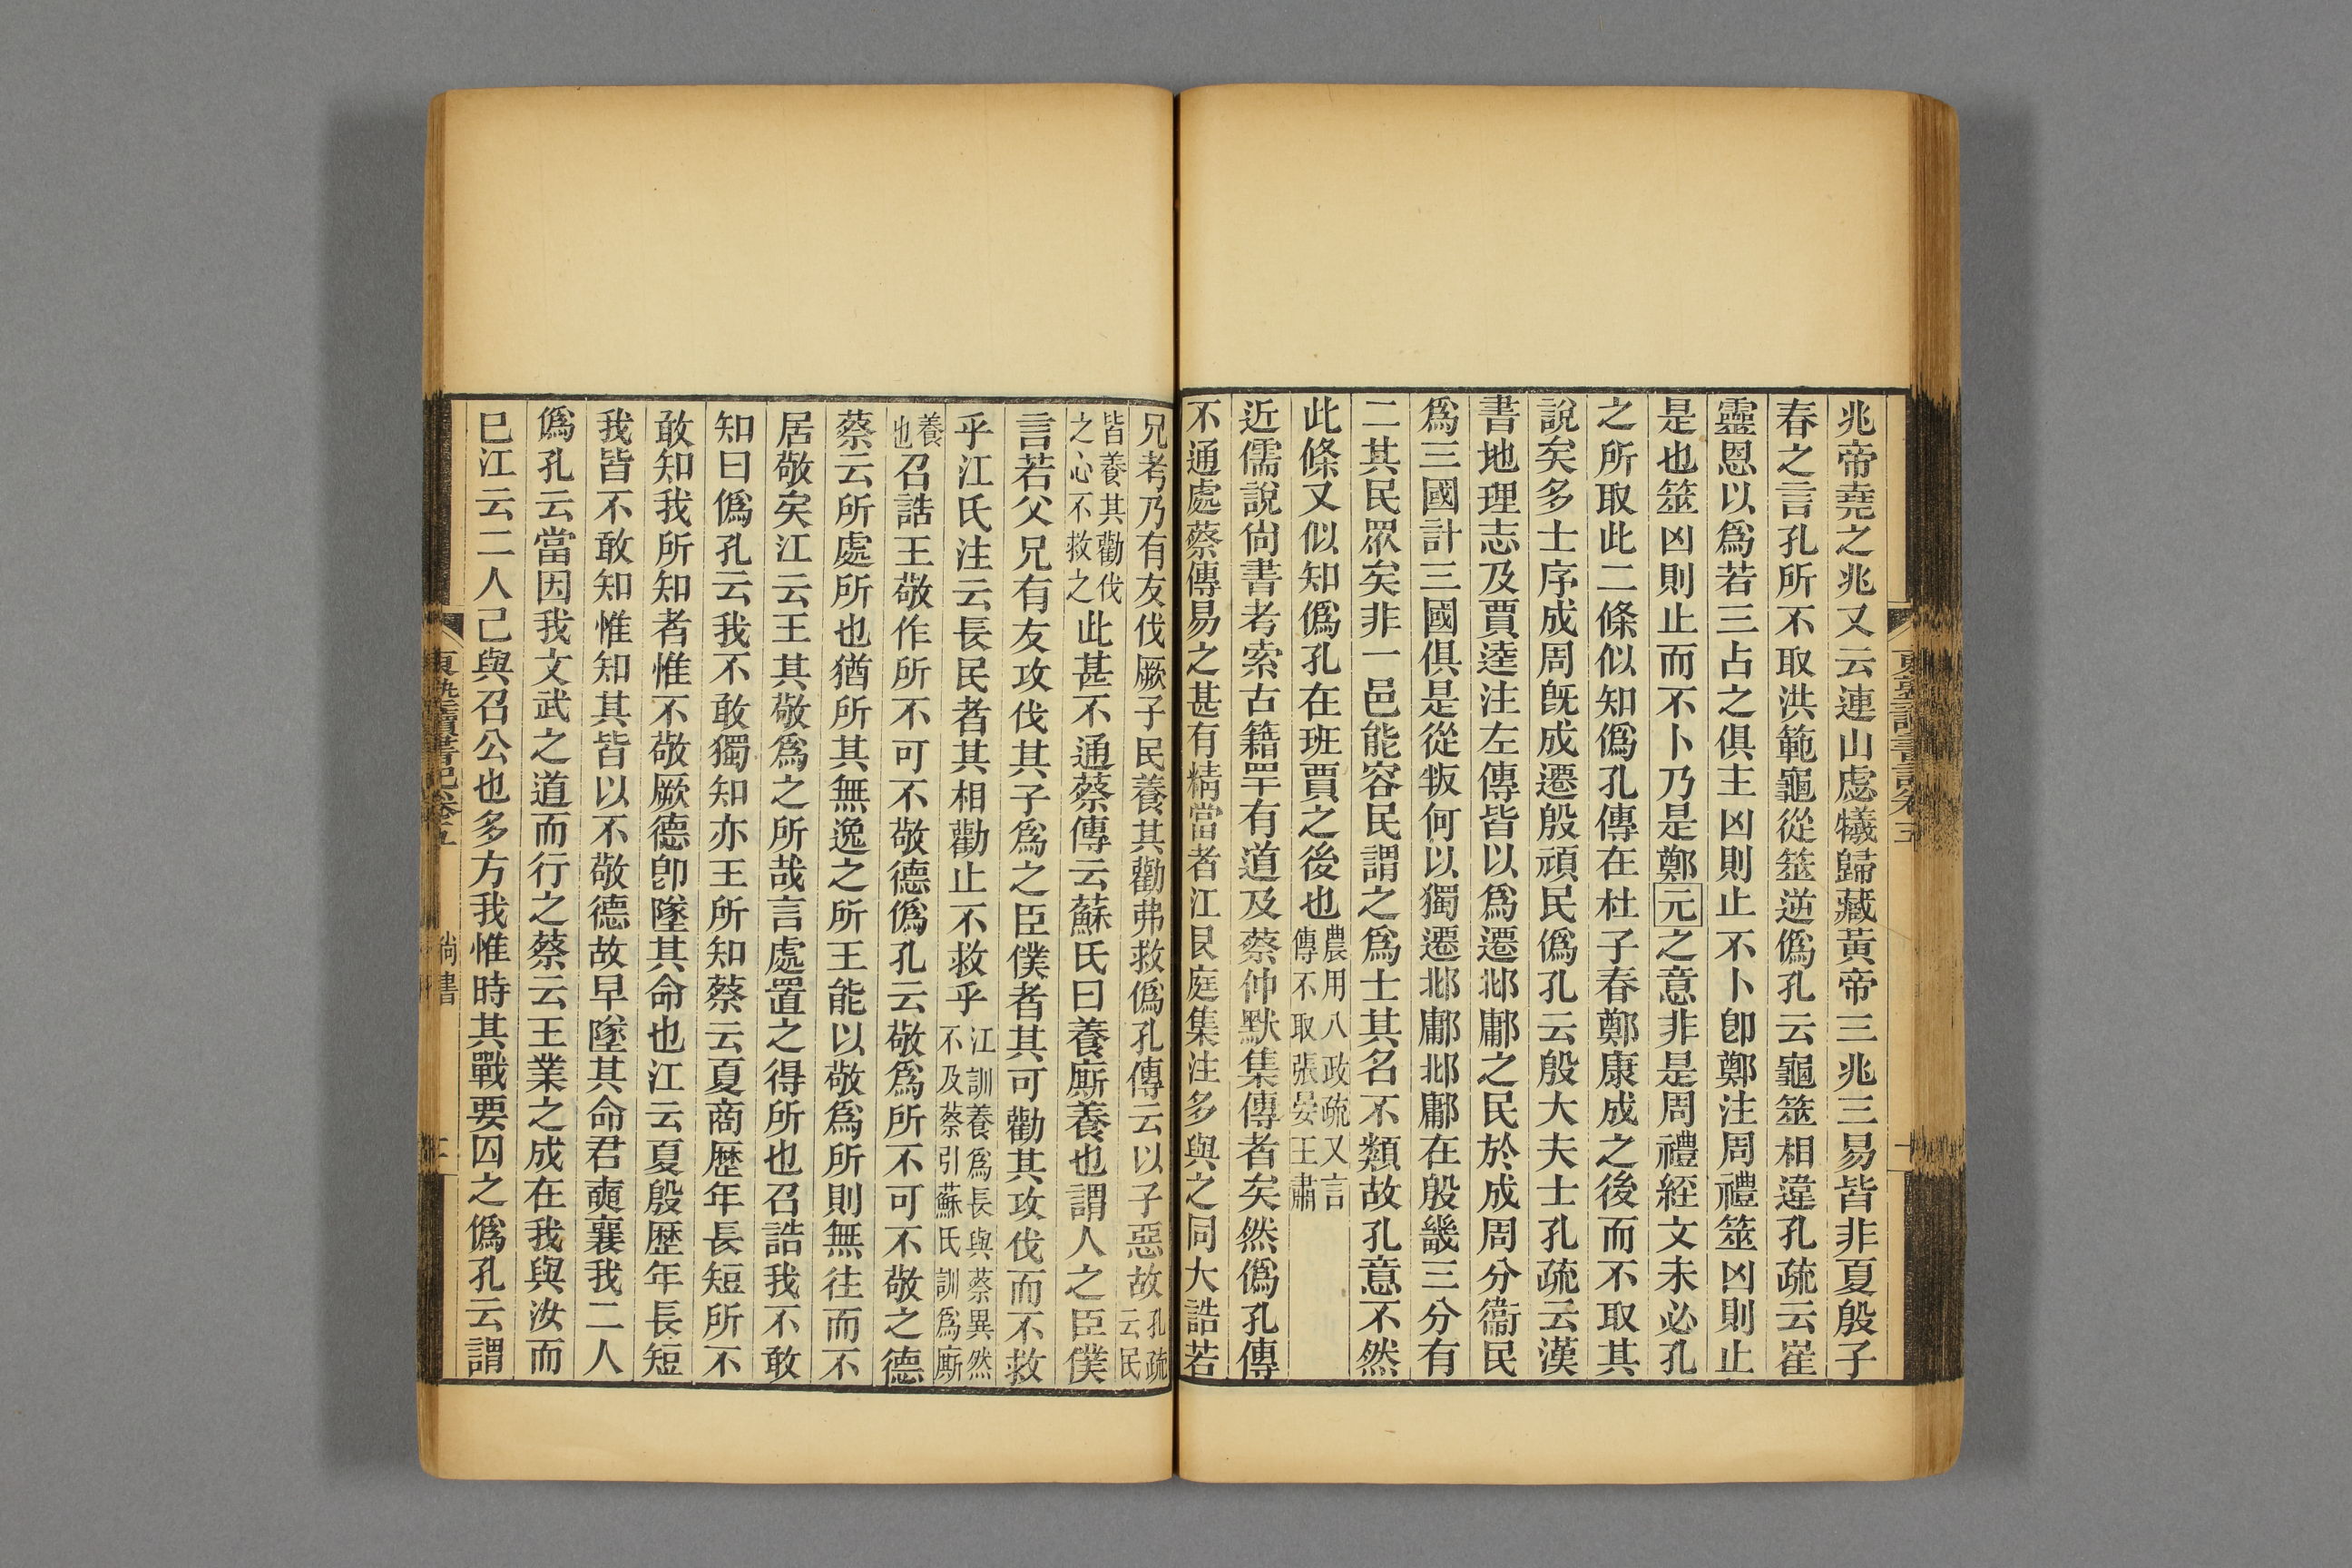 兆帝堯之兆又云連山虙犧歸藏黃帝三兆三易皆非夏殷子
春之言孔所不取洪範龜從筮逆僞孔云龜筮相違孔疏云崔
靈恩以爲若三占之俱主凶則止不卜卽鄭注周禮筮凶則止
是也筮凶則止而不卜乃是鄭元之意非是周禮經文未必孔
之所取此二條似知僞孔傳在杜子春鄭康成之後而不取其
說矣多士序成周旣成遷殷頑民僞孔云殷大夫士孔疏云漢
書地理志及賈逵注左傳皆以爲遷邶鄘之民於成周分衞民
爲三國計三國俱是從叛何以獨遷邶鄘邶鄘在殷畿三分有
二其民眾矣非一邑能容民謂之爲士其名不類故孔意不然
此條又似知僞孔在班賈之後也農用八政疏又言傳不取張晏王肅
近儒說尙書考索古籍罕有道及蔡仲默集傳者矣然僞孔傳
不通處蔡傳易之甚有精當者江艮庭集注多與之同大誥若
兄考乃有友伐厥子民養其勸弗救僞孔傳云以子惡故孔疏云民
皆養其勸伐之心不救之此甚不通蔡傳云蘇氏曰養廝養也謂人之臣僕
言若父兄有友攻伐其子爲之臣僕者其可勸其攻伐而不救
乎江氏注云長民者其相勸止不救乎江訓養爲長與蔡異然不及蔡引蘇氏訓爲廝
養也召誥王敬作所不可不敬德僞孔云敬爲所不可不敬之德
蔡云所處所也猶所其無逸之所王能以敬爲所則無往而不
居敬矣江云王其敬爲之所哉言處置之得所也召誥我不敢
知曰僞孔云我不敢獨知亦王所知蔡云夏商歷年長短所不
敢知我所知者惟不敬厥德卽墜其命也江云夏殷歷年長短
我皆不敢知惟知其皆以不敬德故早墜其命君奭襄我二人
僞孔云當因我文武之道而行之蔡云王業之成在我與汝而
巳江云二人己與召公也多方我惟時其戰要囚之僞孔云謂
尙書